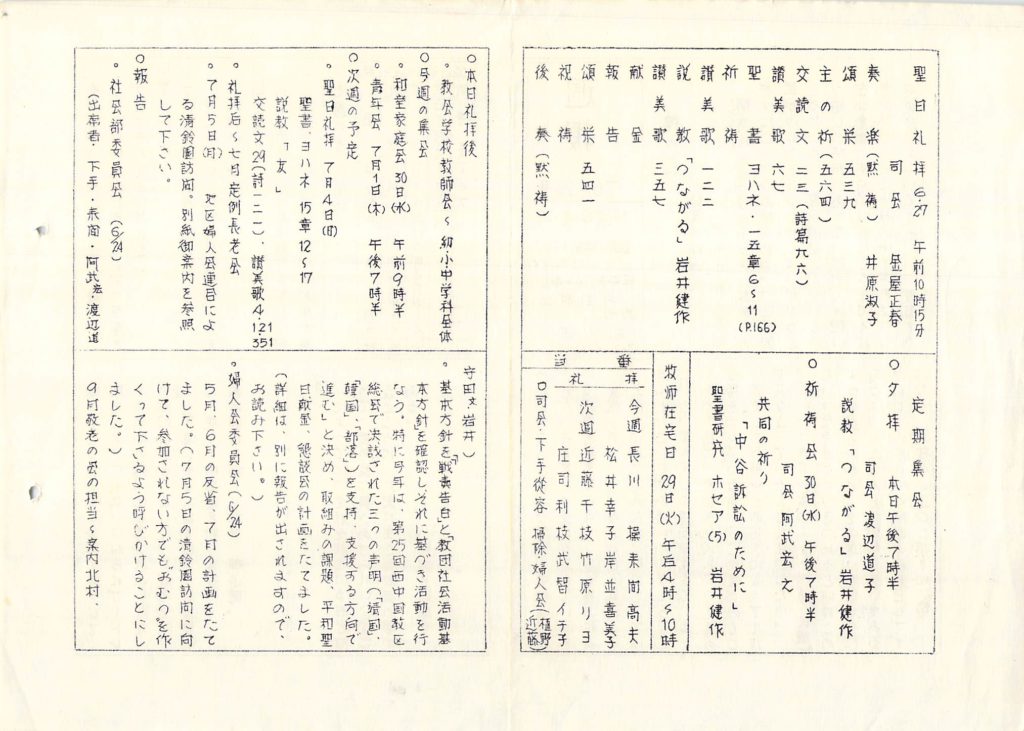 聖日礼拝 6.27 午前10時15分
司会 金屋正春
奏楽(黙祷) 井原淑子
頌栄 五三九
主の祈(五六四)
交読文 二三(詩篇九六)
讃美歌 六七
聖書 ヨハネ・一五章6~11 (P.166)
祈祷
讃美歌 一二二
説教 「つながる」 岩井健作
讃美歌 三五七
献金
報告
頌栄 五四一
祝祷
後奏(黙祷)
定期集会
○夕拝 本日午後7時半
司会 渡辺道子
説教「つながる」岩井健作
○祈祷会 30日(水) 午後7時半
司会 阿武宏之
共同の祈り
「中谷訴訟のために」
聖書研究 ホセア(5) 岩井健作
牧師在宅日 29日(火) 午后4時~10時
礼拝当番
今週 長川 操 未間高夫
松井幸子 岸並喜美子
次週 近藤千枝 竹原リヨ
庄司利枝 武智イチ子
○司会・下手従容 掃除・婦人会(植野 近藤)
○本日礼拝後
・教会学校教師会~幼小中学科全体
○今週の集会
・和室家庭会 30日(水) 午前9時半
・青年会 7月1日(木) 午後7時半
○次週の予定
・聖日礼拝 7月4日(日)
聖書、ヨハネ 15章12~17
説教 「友」
交読文29(詩一二一)、讃美歌4.121.351
・礼拝后~七月定例長老会
・7月5日(月) 地区婦人会連合によ
る清鈴園訪問。別紙御案内を参照
して下さい。
○報告
・社会部委員会 (6/24)
(出席者・下手・未間・阿武宏・渡辺道
守田文 岩井)
・基本方針を「戦責告白」と「教団社会活動基
本方針」を確認しそれに基づき活動を行
なう。特に今年は、第25回西中国教区
総会で決議された三つの声明(「靖国」、
「韓国」「部落」)を支持、支援する方向で
進む」と決め、取組みの課題、平和聖
日献金、懇談会の計画をたてました。
(詳細は、別に報告が出されますので、
お読み下さい。)
・婦人会委員会(6/24)
5月、6月の反省、7月の計画をたて
ました。(7月5日の清鈴園訪問に向
けて、参加されない方でも「おむつ」を作
くって下さるよう呼びかけることにし
ました。)
9月敬老の会の担当~案内北村、